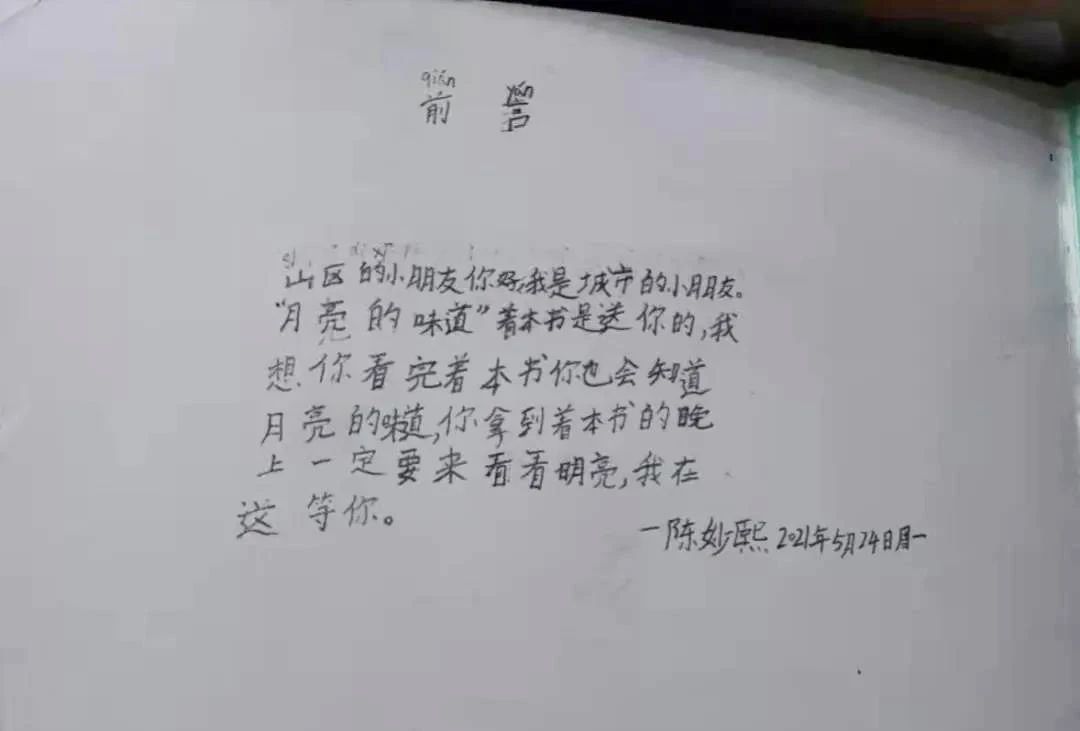 qián yán
前 言
山区的小朋友你好,我是城市的小朋友。
“月亮的味道”着本书是送你的,我
想你看完着本书你也会知道
月亮的味道,你拿到着本书的晚
上一定要来看看明亮,我在
这等你。
一陈妙熙 2021年5月24日周一